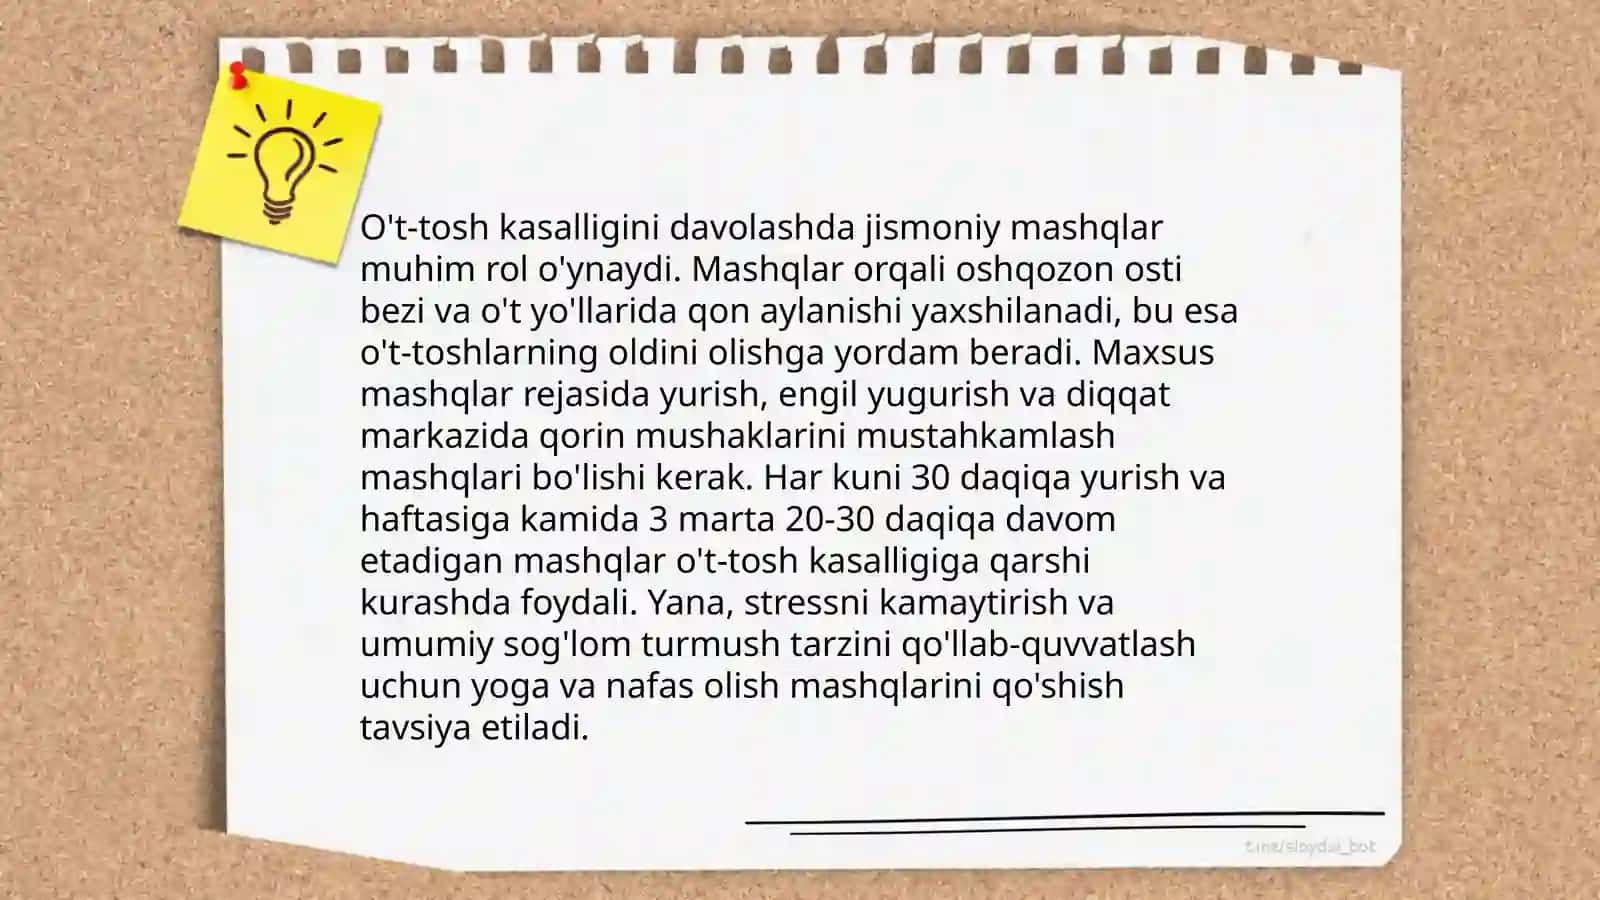 O't-tosh kasalligini davolashda jismoniy mashqlar
muhim rol o'ynaydi. Mashqlar orqali oshqozon osti
bezi va o't yo'llarida qon aylanishi yaxshilanadi, bu esa
o't-toshlarning oldini olishga yordam beradi. Maxsus
mashqlar rejasida yurish, engil yugurish va diqqat
markazida qorin mushaklarini mustahkamlash
mashqlari bo'lishi kerak. Har kuni 30 daqiqa yurish va
haftasiga kamida 3 marta 20-30 daqiqa davom
etadigan mashqlar o't-tosh kasalligiga qarshi
kurashda foydali. Yana, stressni kamaytirish va
umumiy sog'lom turmush tarzini qo'llab-quvvatlash
uchun yoga va nafas olish mashqlarini qo'shish
tavsiya etiladi.